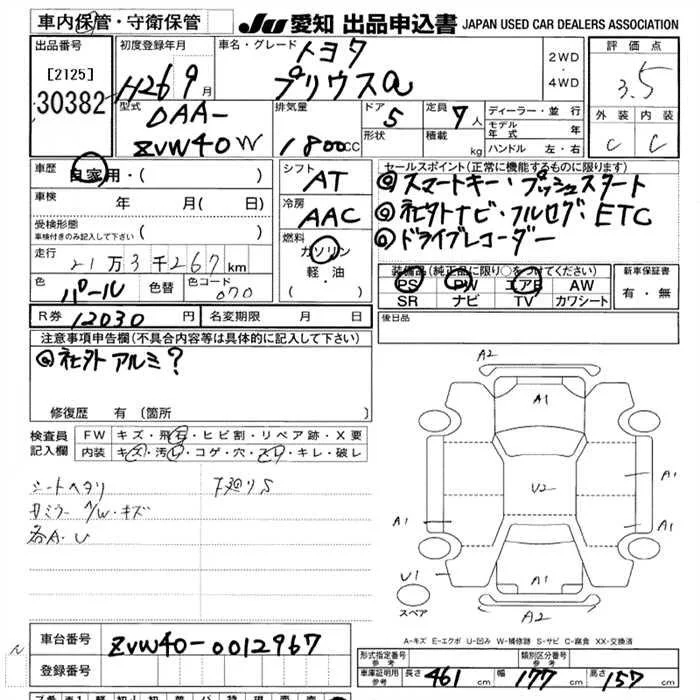 車内保管・守衛保管
JU 愛知 出品申込書 JAPAN USED CAR DEALERS ASSOCIATION
出品番号
[2125]
30382
初度登録年月
H26 9月
車名・グレード
トヨタ
プリウスα
2WD
・
4WD
評価点
3.5
外装 内装
C C
型式
DAA-
ZVW40W
排気量
1800cc
ドア 5
形状
定員 7人
積載 kg
ディーラー・並行
モデル年式 年
ハンドル 左・右
車歴 自家用・( )
車検 年 月( 日)
受検形態
車検付きのみ記入して下さい ( )
走行 21万3千267km
色 パール 色替 色コード 070
R券 12030円 名変期限 月 日
シフト
AT
冷房
AAC
燃料
ガソリン
軽・油
( )
セールスポイント(正常に機能するものに限ります)
◎スマートキー・プッシュスタート
◎社外ナビ・フルセグ・ETC
◎ドライブレコーダー
装備品(純正品に限り○をつけてください)
PS PW エアB AW
SR ナビ TV カワシート
新車保証書
有・無
後日品
注意事項申告欄(不具合内容等は具体的に記入して下さい)
◎社外アルミ?
修復歴 有(箇所 )
検査員記入欄
FW キズ・飛石・ヒビ割・リペア跡・X要
内装 キズ・汚レ・コゲ・穴・スレ・キレ・破レ
シートヘタリ 下廻りS
サミラー A/W・キズ
各A・U
A2
A1
U2
A1
A1
A1
A1
U1
A2
スペア
A-キズ E-エクボ U-凹み W-補修跡 S-サビ C-腐食 XX-交換済
車台番号 ZVW40-0012967
登録番号
形式指定番号 参考
類別区分番号 参考
車庫証明用 参考 長さ 461cm 幅 177cm 高さ 157cm